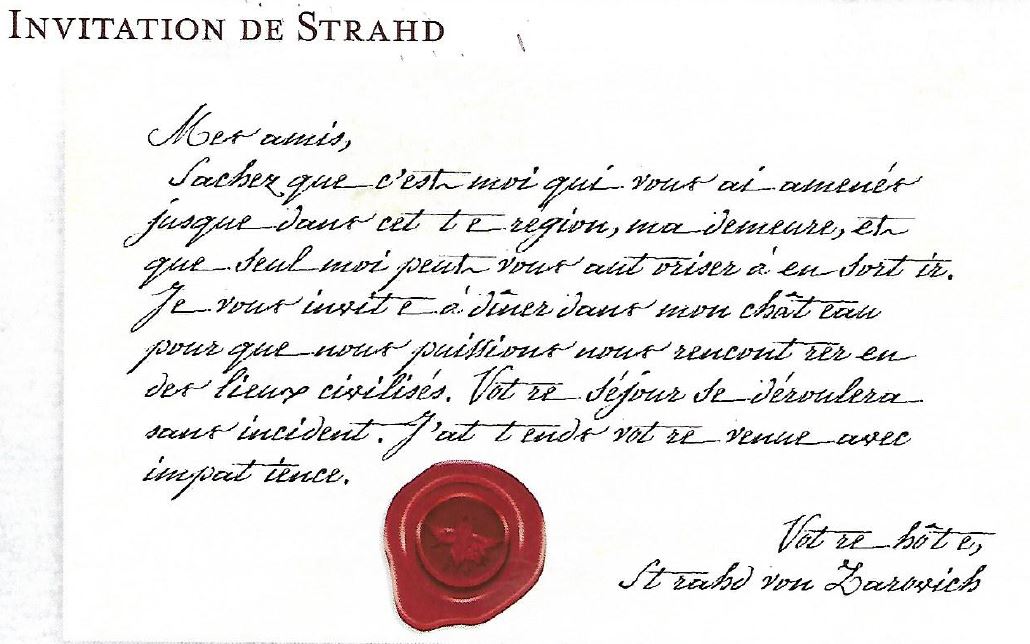 INVITATION DE STRAHD
Mes amis,
Sachez que c'est moi qui vous ai amenés
jusque dans cette région, ma demeure, et
que seul moi peut vous autoriser à en sortir.
Je vous invite à dîner dans mon château
pour que nous puissions nous rencontrer en
des lieux civilisés. Votre séjour se déroulera
sans incident. J'attends votre venue avec
impatience.
Votre hôte,
Strahd von Zarovich